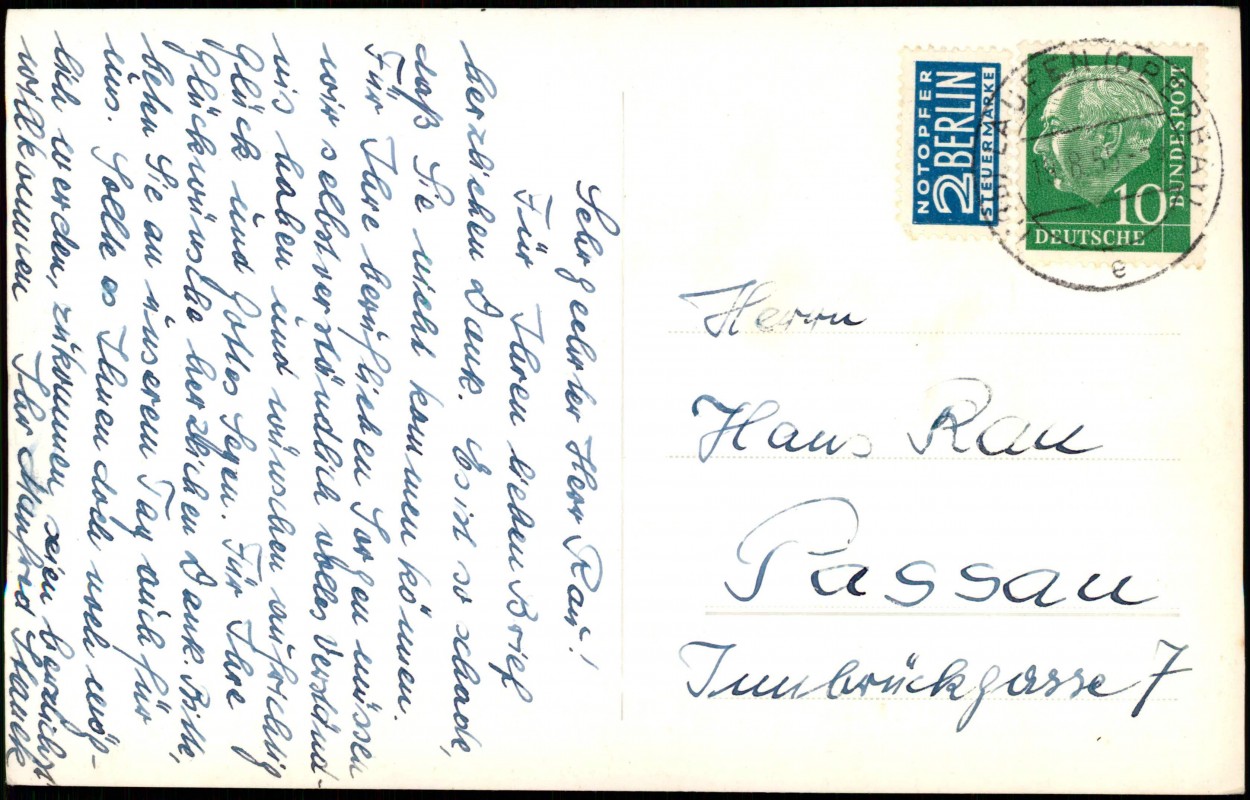 Sehr geehrter Herr Rau!
Für Ihren lieben Brief
herzlichen Dank. Es ist so schade,
daß Sie nicht kommen können.
Für Ihre beruflichen Sorgen müssen
wir selbstverständlich vollstes Verständ-
nis haben und wünschen aufrichtig
Glück und Gottes Segen. Für Ihre
Glückwünsche herzlichen Dank. Bitte,
beten Sie an unserem Tag auch für
uns. Sollte es Ihnen doch noch mög-
lich werden, zu kommen, seien herzlichst
willkommen Ihr Manfred
NOTOPFER
2 BERLIN
STEUERMARKE
BUNDESPOST
10
DEUTSCHE
e
Herrn
Hans Rau
Passau
Innbrückgasse 7